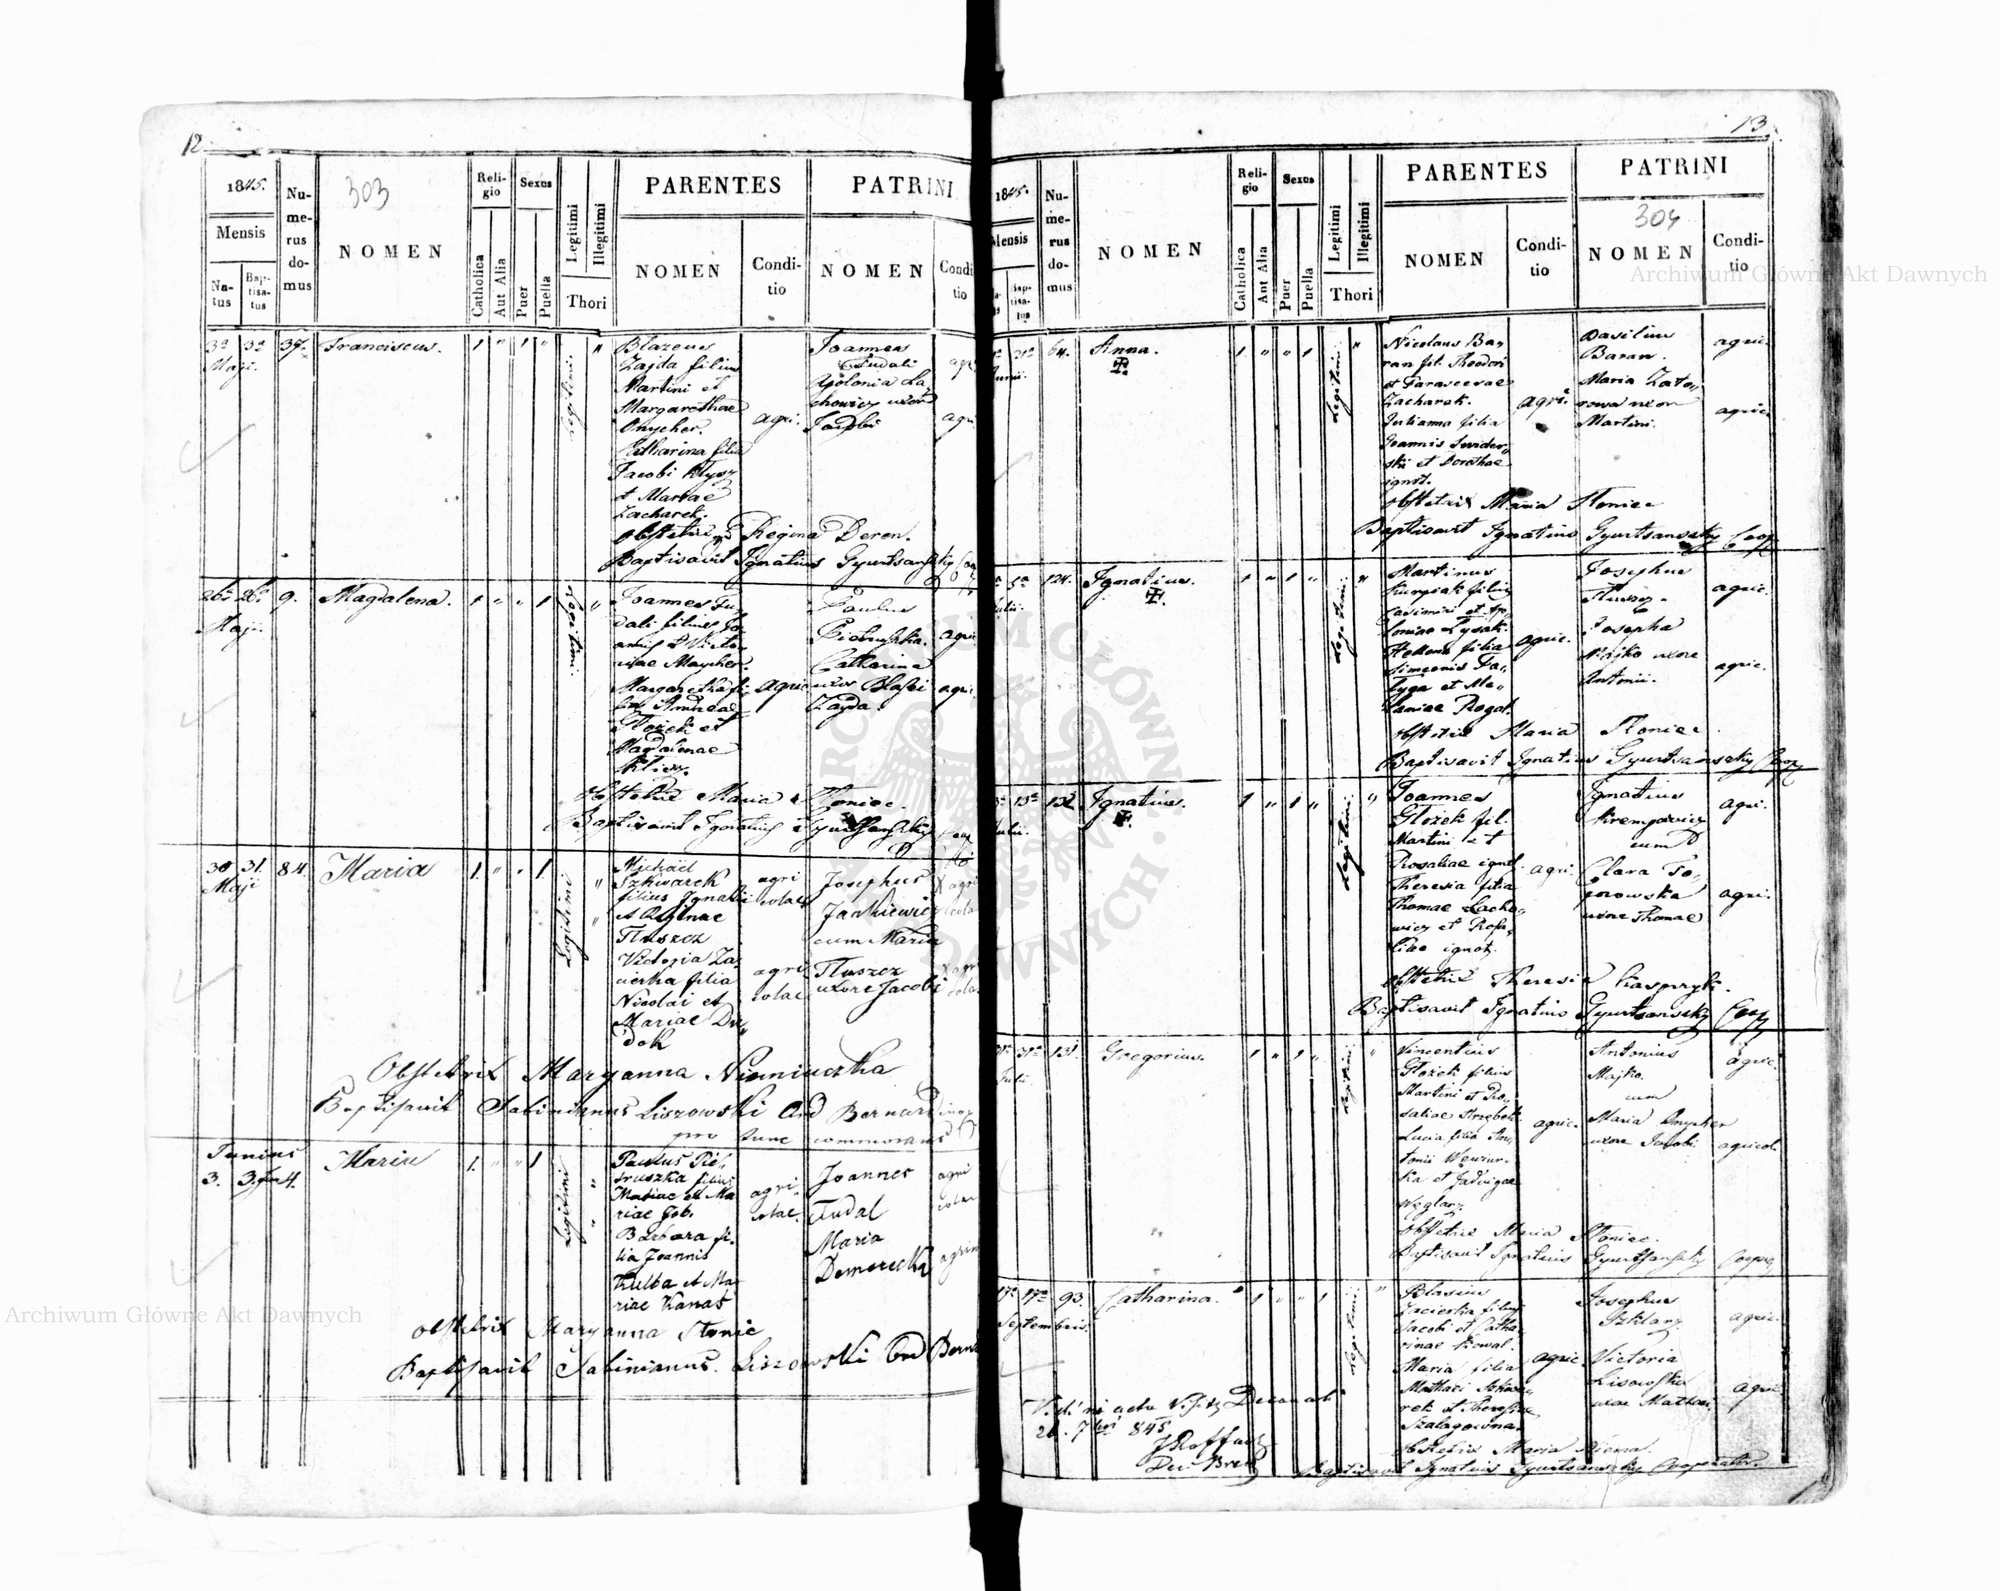 12.
303
1845.
Mensis
Na-
tus
Bap-
tisa-
tus
Nu-
me-
rus
do-
mus
NOMEN
Reli-
gio
Catholica
Aut Alia
Sexus
Puer
Puella
Legitimi
Illegitimi
Thori
PARENTES
NOMEN
Condi-
tio
PATRINI
NOMEN
Condi
tio
3a 3a 37. Franciscus. 1 " 1 "
Maji.
Legitimi.
Blazeus
Zajda filius
Martini et
Margarethae
Onycher.
Catharina filia
Jacobi
et Mariae
Zacharek.
agri.
Joannes
Fudali
Apolonia La-
chowicz uxor
Josephi
Obstetrix Regina Deren.
Baptisavit Ignatius Gyurtsansky
26a 26a 9. Magdalena. 1 " " 1 "
Maji.
Legitimi.
Joannes Fu-
dali filius Jo-
annis et Victo-
riae
Margaretha fi-
lia Andreae
Głożek et
Magdalenae
agric
Paulus
Pietruszka.
Catharina
uxor Blasei
Zajda.
agric
agric
Obstetrix Maria Słoniec.
Baptisavit Ignatius Gyurtsansky
30 31. 84. Maria 1. " " 1.
Maji
Legitimi
Michael
Szkwarek
filius Ignatii
et Reginae
Tłuszcz
Victoria Za-
cierka filia
Nicolai et
Mariae Du-
dek
agri
colae
agri
colae
Josephus
Jankiewicz
cum Maria
Tłuszcz
uxore Jacobi
Obstetrix Maryanna Niemiuczka
Baptisavit Sabinianus Liszowski Ord Bernardinor
pro tunc commorans
Junius
3. 3. 4. Maria 1. " " 1
Legitimi
Paulus Pie-
truszka filius
Mariae et Ma
riae Gob.
Barbara fi-
lia Joannis
Kulba et Ma
riae Kanas
agri-
colae.
Joannes
Fudal
Maria
Domarecka
agri
colae
Obstetrix Maryanna Słonie
Baptisavit Sabinianus. Liszowski Ord Berna
13.
304
1845.
Mensis
Nu-
me-
rus
do-
mus
NOMEN
Reli-
gio
Catholica
Aut Alia
Sexus
Puer
Puella
Legitimi
Illegitimi
Thori
PARENTES
NOMEN
Condi-
tio
PATRINI
NOMEN
Condi-
tio
21a 64. Anna. 1 " " 1 "
Junii.
Legitimi.
Nicolaus Ba-
ran fil. Theodori
et Parascevae
Zacharek.
Julianna filia
Joannis Swider-
ski et Dorothae
ignot.
agri.
Basilius
Baran.
Maria Zato-
rowa uxor
Martini.
agric.
agric.
Obstetrix Maria Słoniec
Baptisavit Ignatius Gyurtsanszky Coop
5a 124. Ignatius. 1 " 1 " "
Julii.
Legitimi.
Martinus
Kurpiak filius
Casimiri et Ap-
loniae Lysak.
Hellena filia
Simeonis Fa-
lyga et Me-
laniae Rogal.
agric.
Josephus
Tłuszcz.
Josepha
Majko uxore
Antonii.
agric.
agric.
Obstetrix Maria Słoniec.
Baptisavit Ignatius Gyurtsanszky Coop
13a 132. Ignatius. 1 " 1 " "
Julii.
Legitimi.
Joannes
Głożek fil.
Martini et
Rosaliae ignot.
Theresia filia
Thomae Lacho-
wicz et Rosa-
liae ignot.
agri.
Ignatius
Krempowicz
cum
Clara To-
porowska
uxore Thomae
agri.
agri.
Obstetrix Theresia Kaspryk.
Baptisavit Ignatius Gyurtsanszky Coop
31a 31a 131. Gregorius. 1 " 1 " "
Julii
Legitimi.
Vincentius
Głożek filius
Martini et Ro-
saliae Strzebok
Lucia filia An-
tonii Wewiur-
ka et Jadvigae
Weglarz.
agric.
Antonius
Majko.
cum
Maria Onycher
uxore Jacobi.
agric.
agricol.
Obstetrix Maria Słoniec.
Baptisavit Ignatius Gyurtsansky Coopeg
17a 17a 93. Catharina. 1 " " 1 "
Septembris.
Legitimi.
Blasius
Zacierka filius
Jacobi et Catha-
rinae Kowal.
Maria filia
Mathaei Szkwa-
rek et Theresiae
Szalagowna.
agric
Josephus
Szklarz
Victoria
Lisowska
uxore Mathaei.
agric.
agric.
Obstetrix Maria Niema.
Baptisavit Ignatius Gyurtsanszky Cooperator.
Vidi in actu Visitae Decanal
26. 7bri 845
Archiwum Główne Akt Dawnych
ARCHIWUM GŁÓWNE AKT DAWNYCH
Archiwum Główne Akt Dawnych